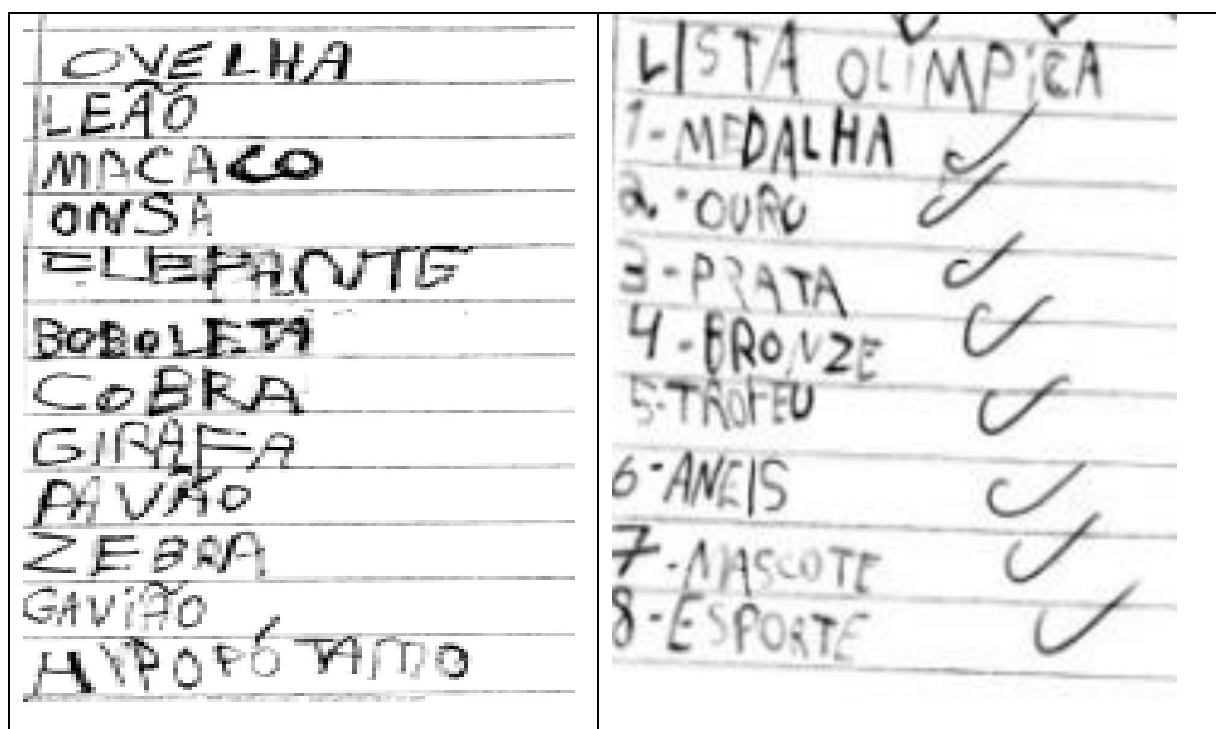 OVELHA
LEÃO
MACACO
ONSA
ELEFANTE
BOBOLETA
COBRA
GIRAFA
PAVÃO
ZEBRA
GAVIÃO
HIPOPÓTAMO
LISTA OLIMPICA
1-MEDALHA
2-OURO
3-PRATA
4-BRONZE
5-TROFEU
6-ANEIS
7-MASCOTE
8-ESPORTE